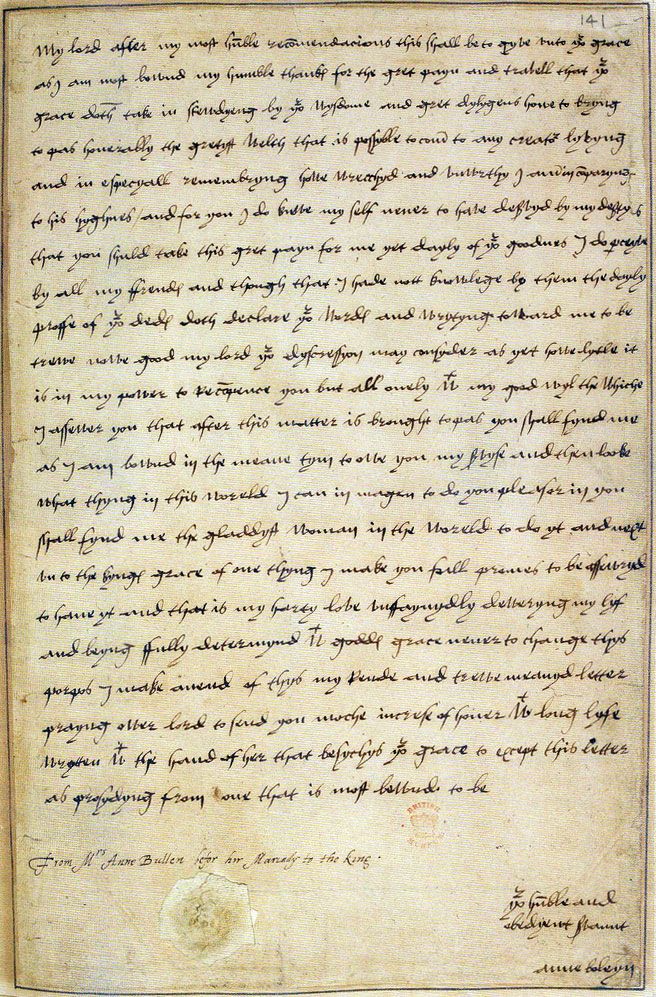 141
My lord after my most hūble recōmendacions this shall be to gyve unto yor grace
as I am most bownd my humble thanks for the gret payn and travell that yor
grace doth take in stewdyeng by yor wysdome and gret dylygens howe to bryng
to pas honerably the gretyst welth that is possyble to come to any creator lyvyng
and in especyall remembryng howe wrecchyd and unwrthy I am in cōparyng
to his hyghnes and for you I do knowe my self never to have deservyd by my desertys
that you shuld take this gret payn for me yet dayly of yor goodnes I do perceyve
by all my ffrends and though that I hade nott knowlege by them the dayly
proffe of yor deds doth declare yor words and wrytyng toward me to be
trewe nowe good my lord yor dyscressyon may consyder as yet howe lytle it
is in my power to recōpence you but all onely wt my good wyl the whiche
I assewer you that after this matter is brought to pas you shall fynd me
as I am bownd in the meane tym to owe you my servyse and then looke
what thyng in this woreld I can inmagen to do you pleasor in you
shall fynd me the gladdyst woman in the woreld to do yt and next
unto the kyngs grace of one thyng I make you full promes to be assewryd
to have yt and that is my harty love unffaynydly dewering my lyf
and beyng ffully determynd wt godds grace never to change thys
porpos I make anend of thys my rende and trewe meanyd letter
prayng ower lord to send you moche increse of honer wt long lyfe
wryten wt the hand of her that besychys yor grace to except this letter
as prosydyng from one that is most bownd to be
BRITISH MUSEUM
From Mrs Anne Bullen befor hir Mariadg to the King.
yor hūble and
obedyent servant
anne boleyn